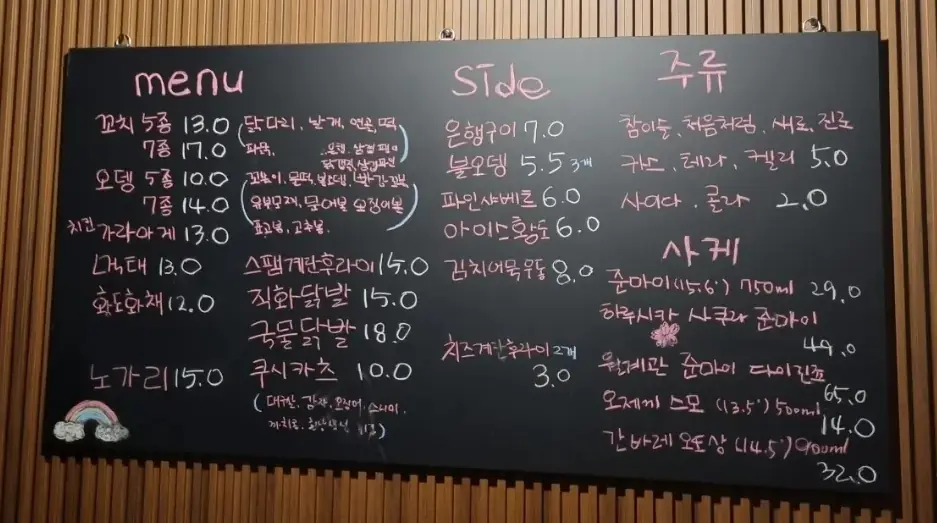 menu
꼬치 5종 13.0
7종 17.0
(닭다리, 날개, 연골, 떡,
파닭,
은행, 삼겹
오뎅 5종 10.0
7종 14.0
물떡,
유부모찌, 문어볼 오징어볼
표고볼, 고추볼.
치킨 가라아게 13.0
먹태 13.0
황도화채 12.0
노가리 15.0
스팸계란후라이 15.0
직화닭발 15.0
국물닭발 18.0
쿠시카츠 10.0
감자, 오징어,
Side
은행구이 7.0
불오뎅 5.5 3개
파인샤베트 6.0
아이스황도 6.0
김치어묵우동 8.0
치즈계란후라이 2개
3.0
주류
참이슬, 처음처럼, 새로, 진로
카스, 테라, 켈리 5.0
사이다, 콜라 2.0
사케
준마이 (15.6°) 750ml 29.0
하루시카 사쿠라 준마이
49.0
월계관 준마이 다이긴죠
65.0
오제끼 스모 (13.5°) 500ml
14.0
간바레 오또상 (14.5°) 900ml
32.0